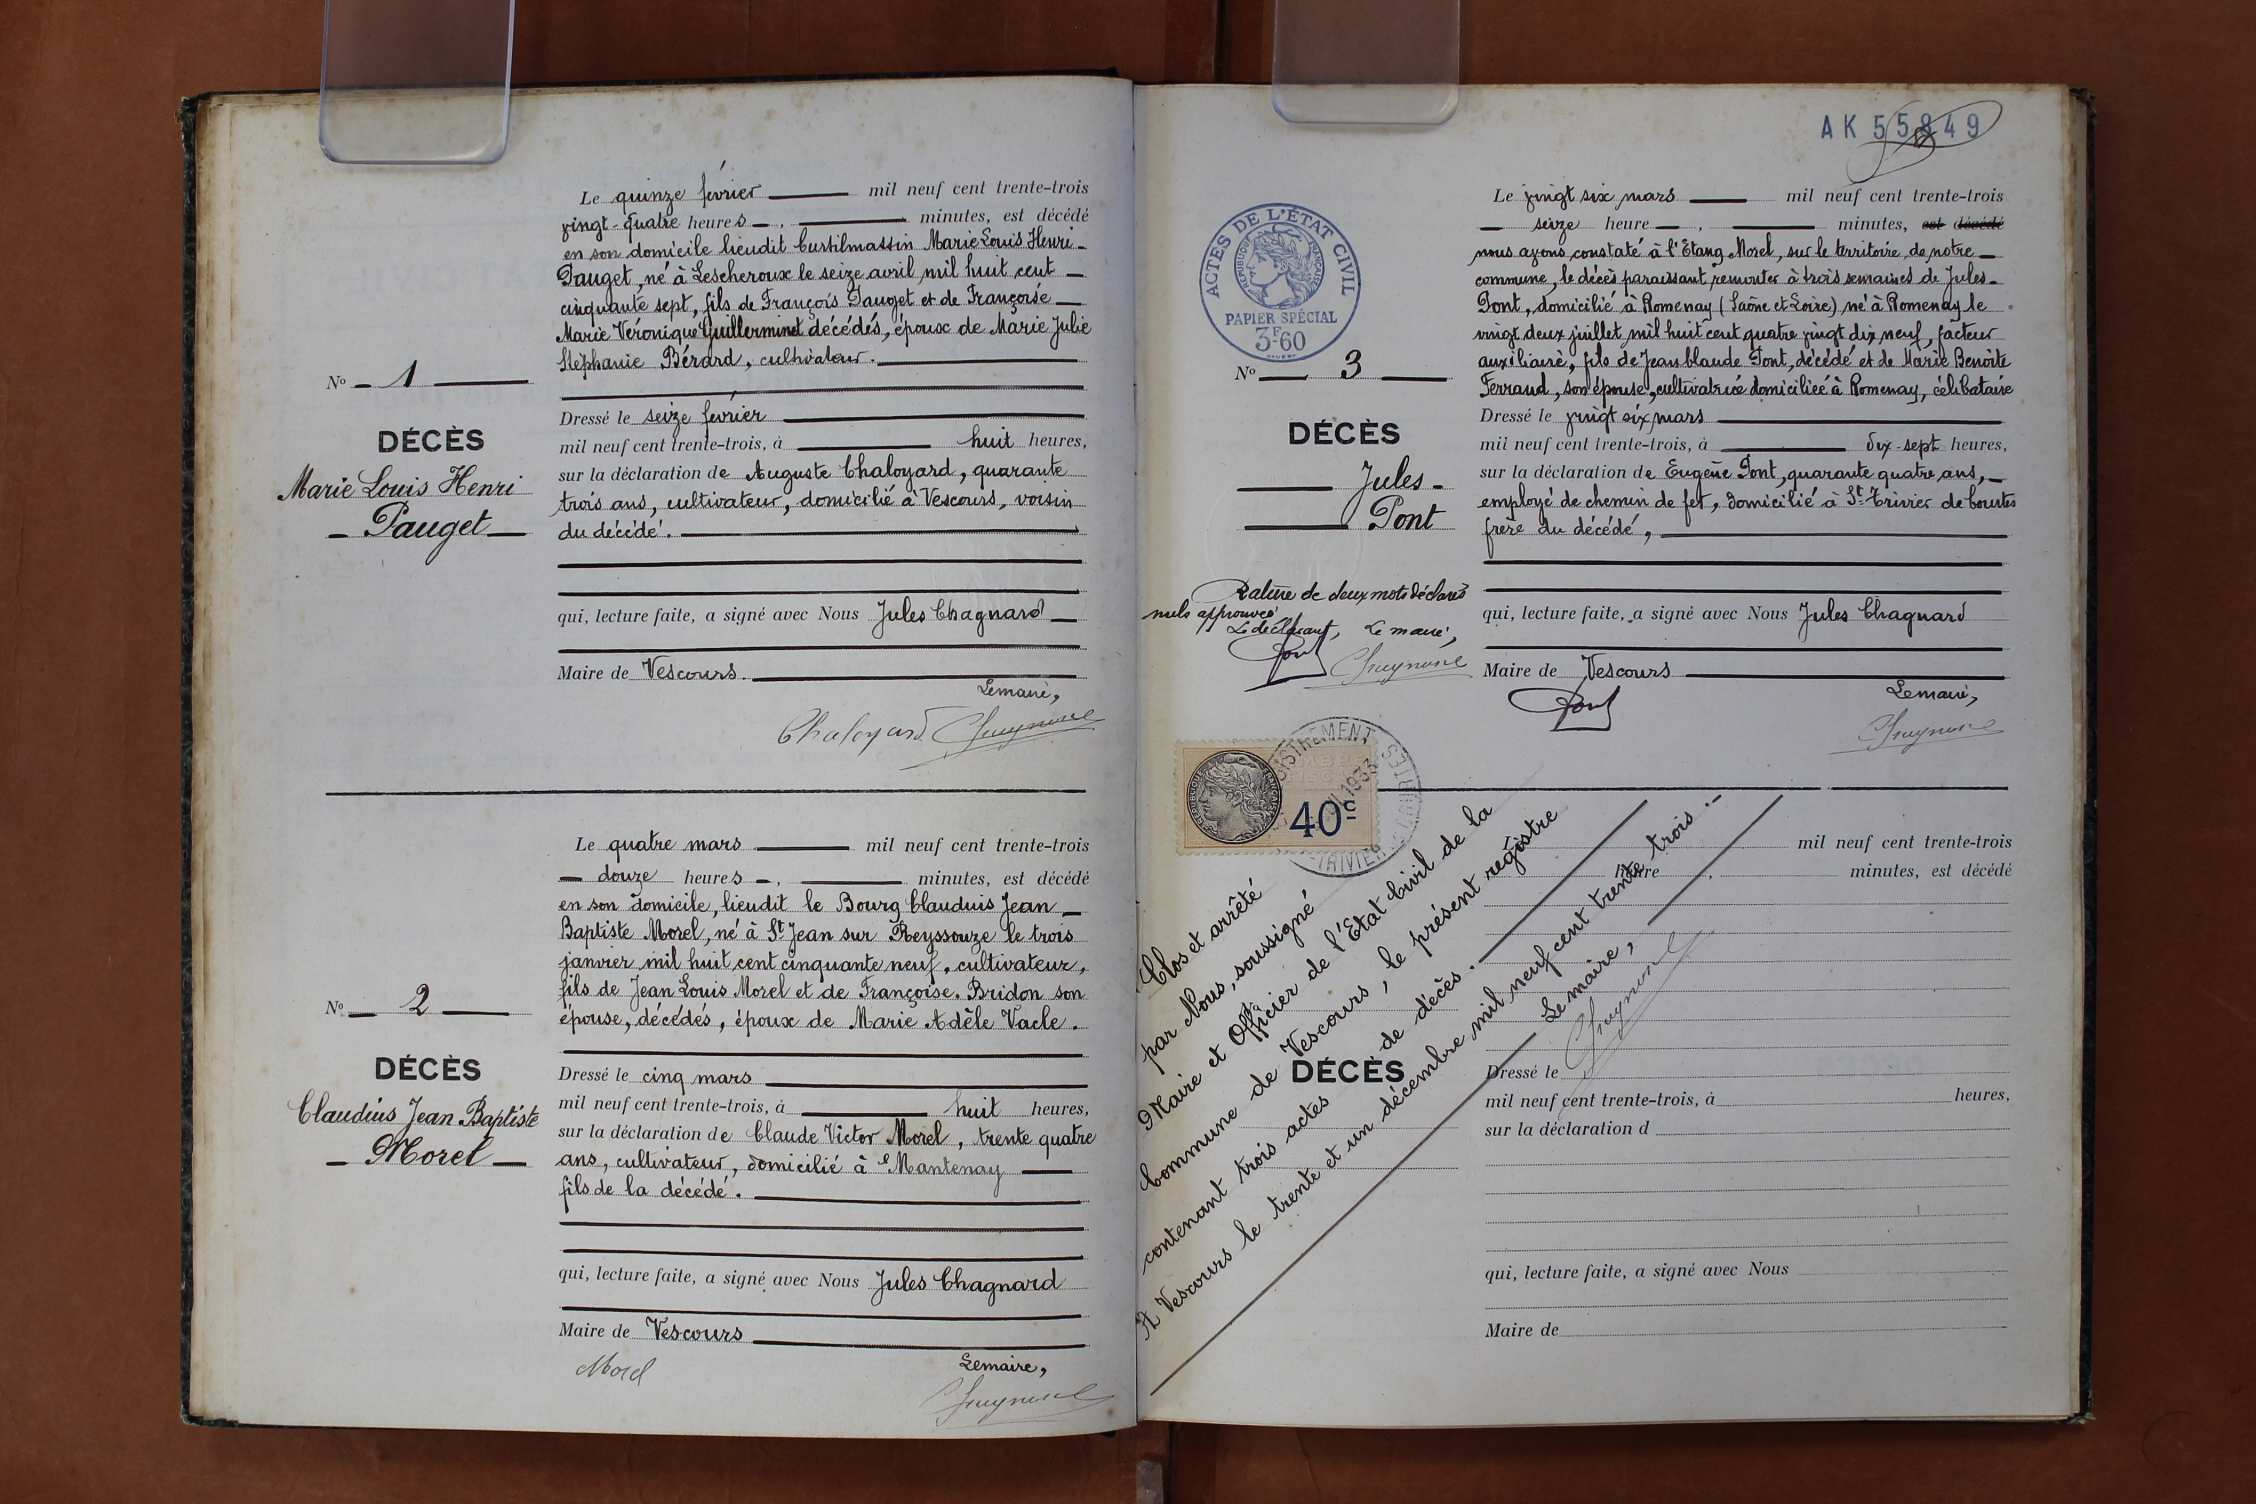 Le quinze février mil neuf cent trente-trois
vingt-quatre heures, minutes, est décédé
en son domicile lieudit Curtilmassin Marie Louis Henri
Pauget, né à Lescheroux le seize avril mil huit cent
cinquante sept, fils de François Pauget et de Françoise
Marie Véronique Guillerminet décédés, époux de Marie Julie
Stéphanie Bérard, cultivateur.
No 1
DÉCÈS
Marie Louis Henri
Pauget
Dressé le seize février
mil neuf cent trente-trois, à huit heures,
sur la déclaration de Auguste Chaloyard, quarante
trois ans, cultivateur, domicilié à Vescours, voisin
du décédé.
qui, lecture faite, a signé avec Nous Jules Chagnard
Maire de Vescours.
Le maire,
Chaloyard
Le quatre mars mil neuf cent trente-trois
douze heures, minutes, est décédé
en son domicile, lieudit le Bourg Clauduis Jean
Baptiste Morel, né à St Jean sur Reyssouze le trois
janvier mil huit cent cinquante neuf, cultivateur,
fils de Jean Louis Morel et de Françoise Bridon son
épouse, décédés, époux de Marie Adèle Vacle.
No 2
DÉCÈS
Claudius Jean Baptiste
Morel
Dressé le cinq mars
mil neuf cent trente-trois, à huit heures,
sur la déclaration de Claude Victor Morel, trente quatre
ans, cultivateur, domicilié à Mantenay
fils de la décédé.
qui, lecture faite, a signé avec Nous Jules Chagnard
Maire de Vescours
Le maire,
Morel
AK 55849
ACTES DE L'ÉTAT CIVIL
RÉPUBLIQUE FRANÇAISE
PAPIER SPÉCIAL
3F60
Le vingt six mars mil neuf cent trente-trois
seize heure, minutes, est décédé
nous avons constaté à l'Etang Morel, sur le territoire de notre
commune, le décès paraissant remonter à trois semaines de Jules
Pont, domicilié à Romenay (Saône et Loire) né à Romenay le
vingt deux juillet mil huit cent quatre vingt dix neuf, facteur
auxiliaire, fils de Jean Claude Pont, décédé et de Marie Benoîte
Ferraud, son épouse, cultivatrice domiciliée à Romenay, célibataire
No 3
DÉCÈS
Jules
Pont
Dressé le vingt six mars
mil neuf cent trente-trois, à dix-sept heures,
sur la déclaration de Eugène Pont, quarante quatre ans,
employé de chemin de fer, domicilié à St Trivier de Courtes
frère du décédé,
qui, lecture faite, a signé avec Nous Jules Chagnard
Maire de Vescours
Le maire,
Pont
Rature de deux mots déclarés
nuls approuvée
Le déclarant, Le maire,
Pont
40c
1933
Clos et arrêté
par Nous, soussigné
Maire et Officier de l'Etat Civil de la
Commune de Vescours, le présent registre
contenant trois actes de décès.
A Vescours le trente et un décembre mil neuf cent trente trois.
Le maire,
Le mil neuf cent trente-trois
heure, minutes, est décédé
DÉCÈS
Dressé le
mil neuf cent trente-trois, à heures,
sur la déclaration d
qui, lecture faite, a signé avec Nous
Maire de